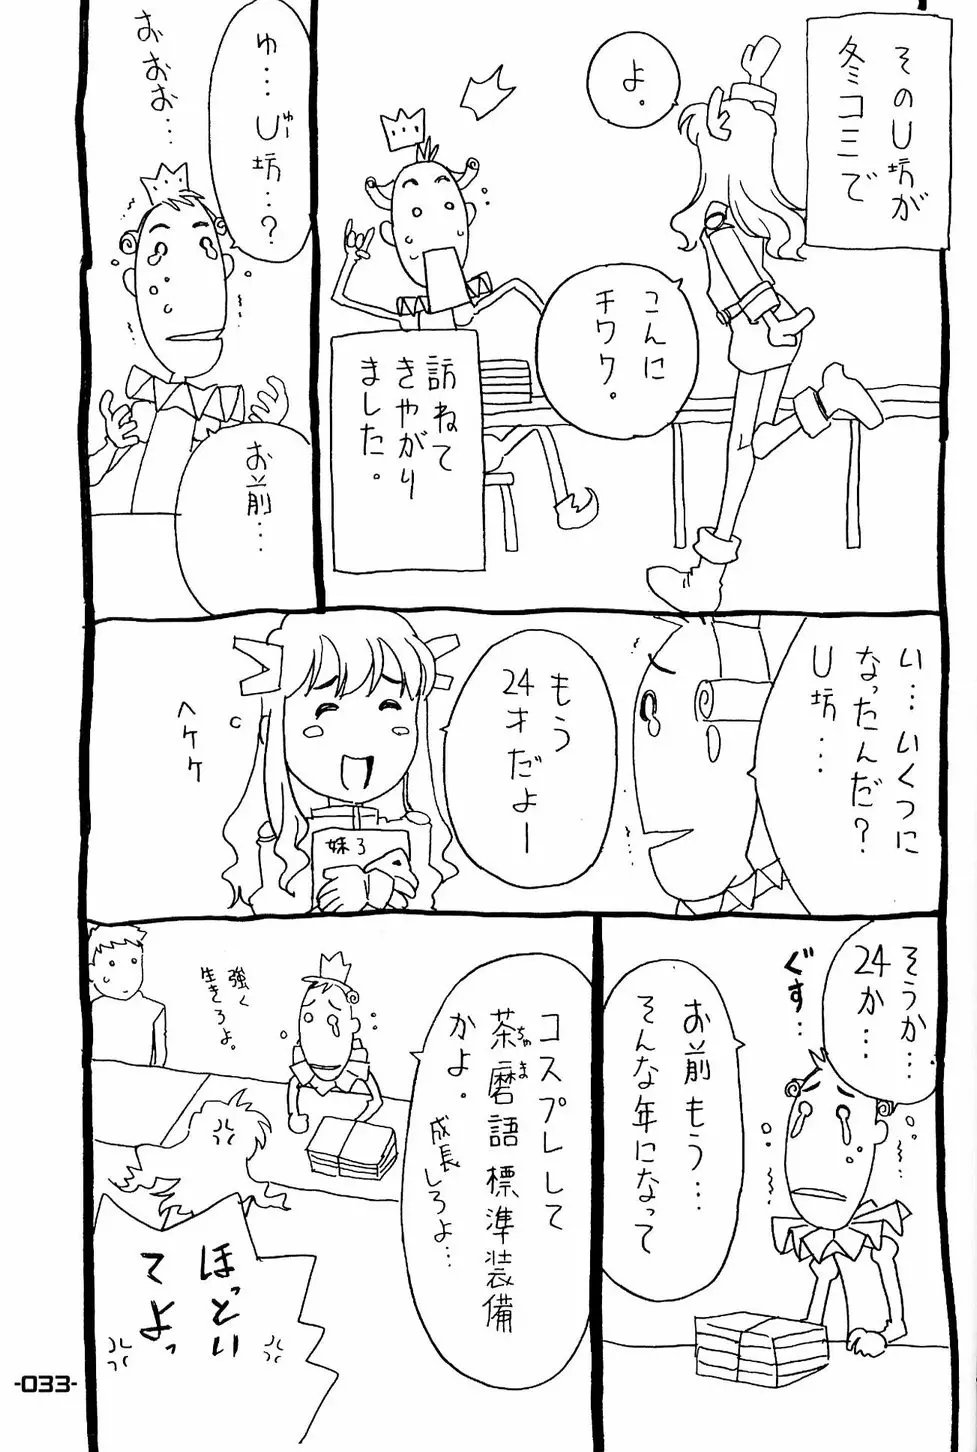 そのU坊が
冬コミで
よ。
こんに
チワワ。
訪ねて
きやがり
ました。
ゆ…
U坊…?
ゆー
おおお…
お前…
い…いくつに
なったんだ?
U坊…
もう
24才だよー
ヘケケ
妹3
そうか…
24か…
ぐす…
お前もう…
そんな年になって
コスプレして
茶磨語標準装備
ちゃま
かよ。
成長しろよ…
強く
生きろよ。
ほっとい
てよっ
-033-